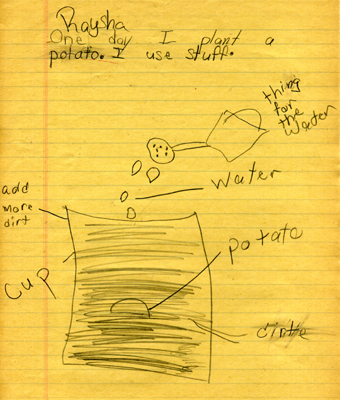 Raysha
One day I plant a
potato. I use stuff.
thing
for
the
water
water
add
more
dirt
potate
cup